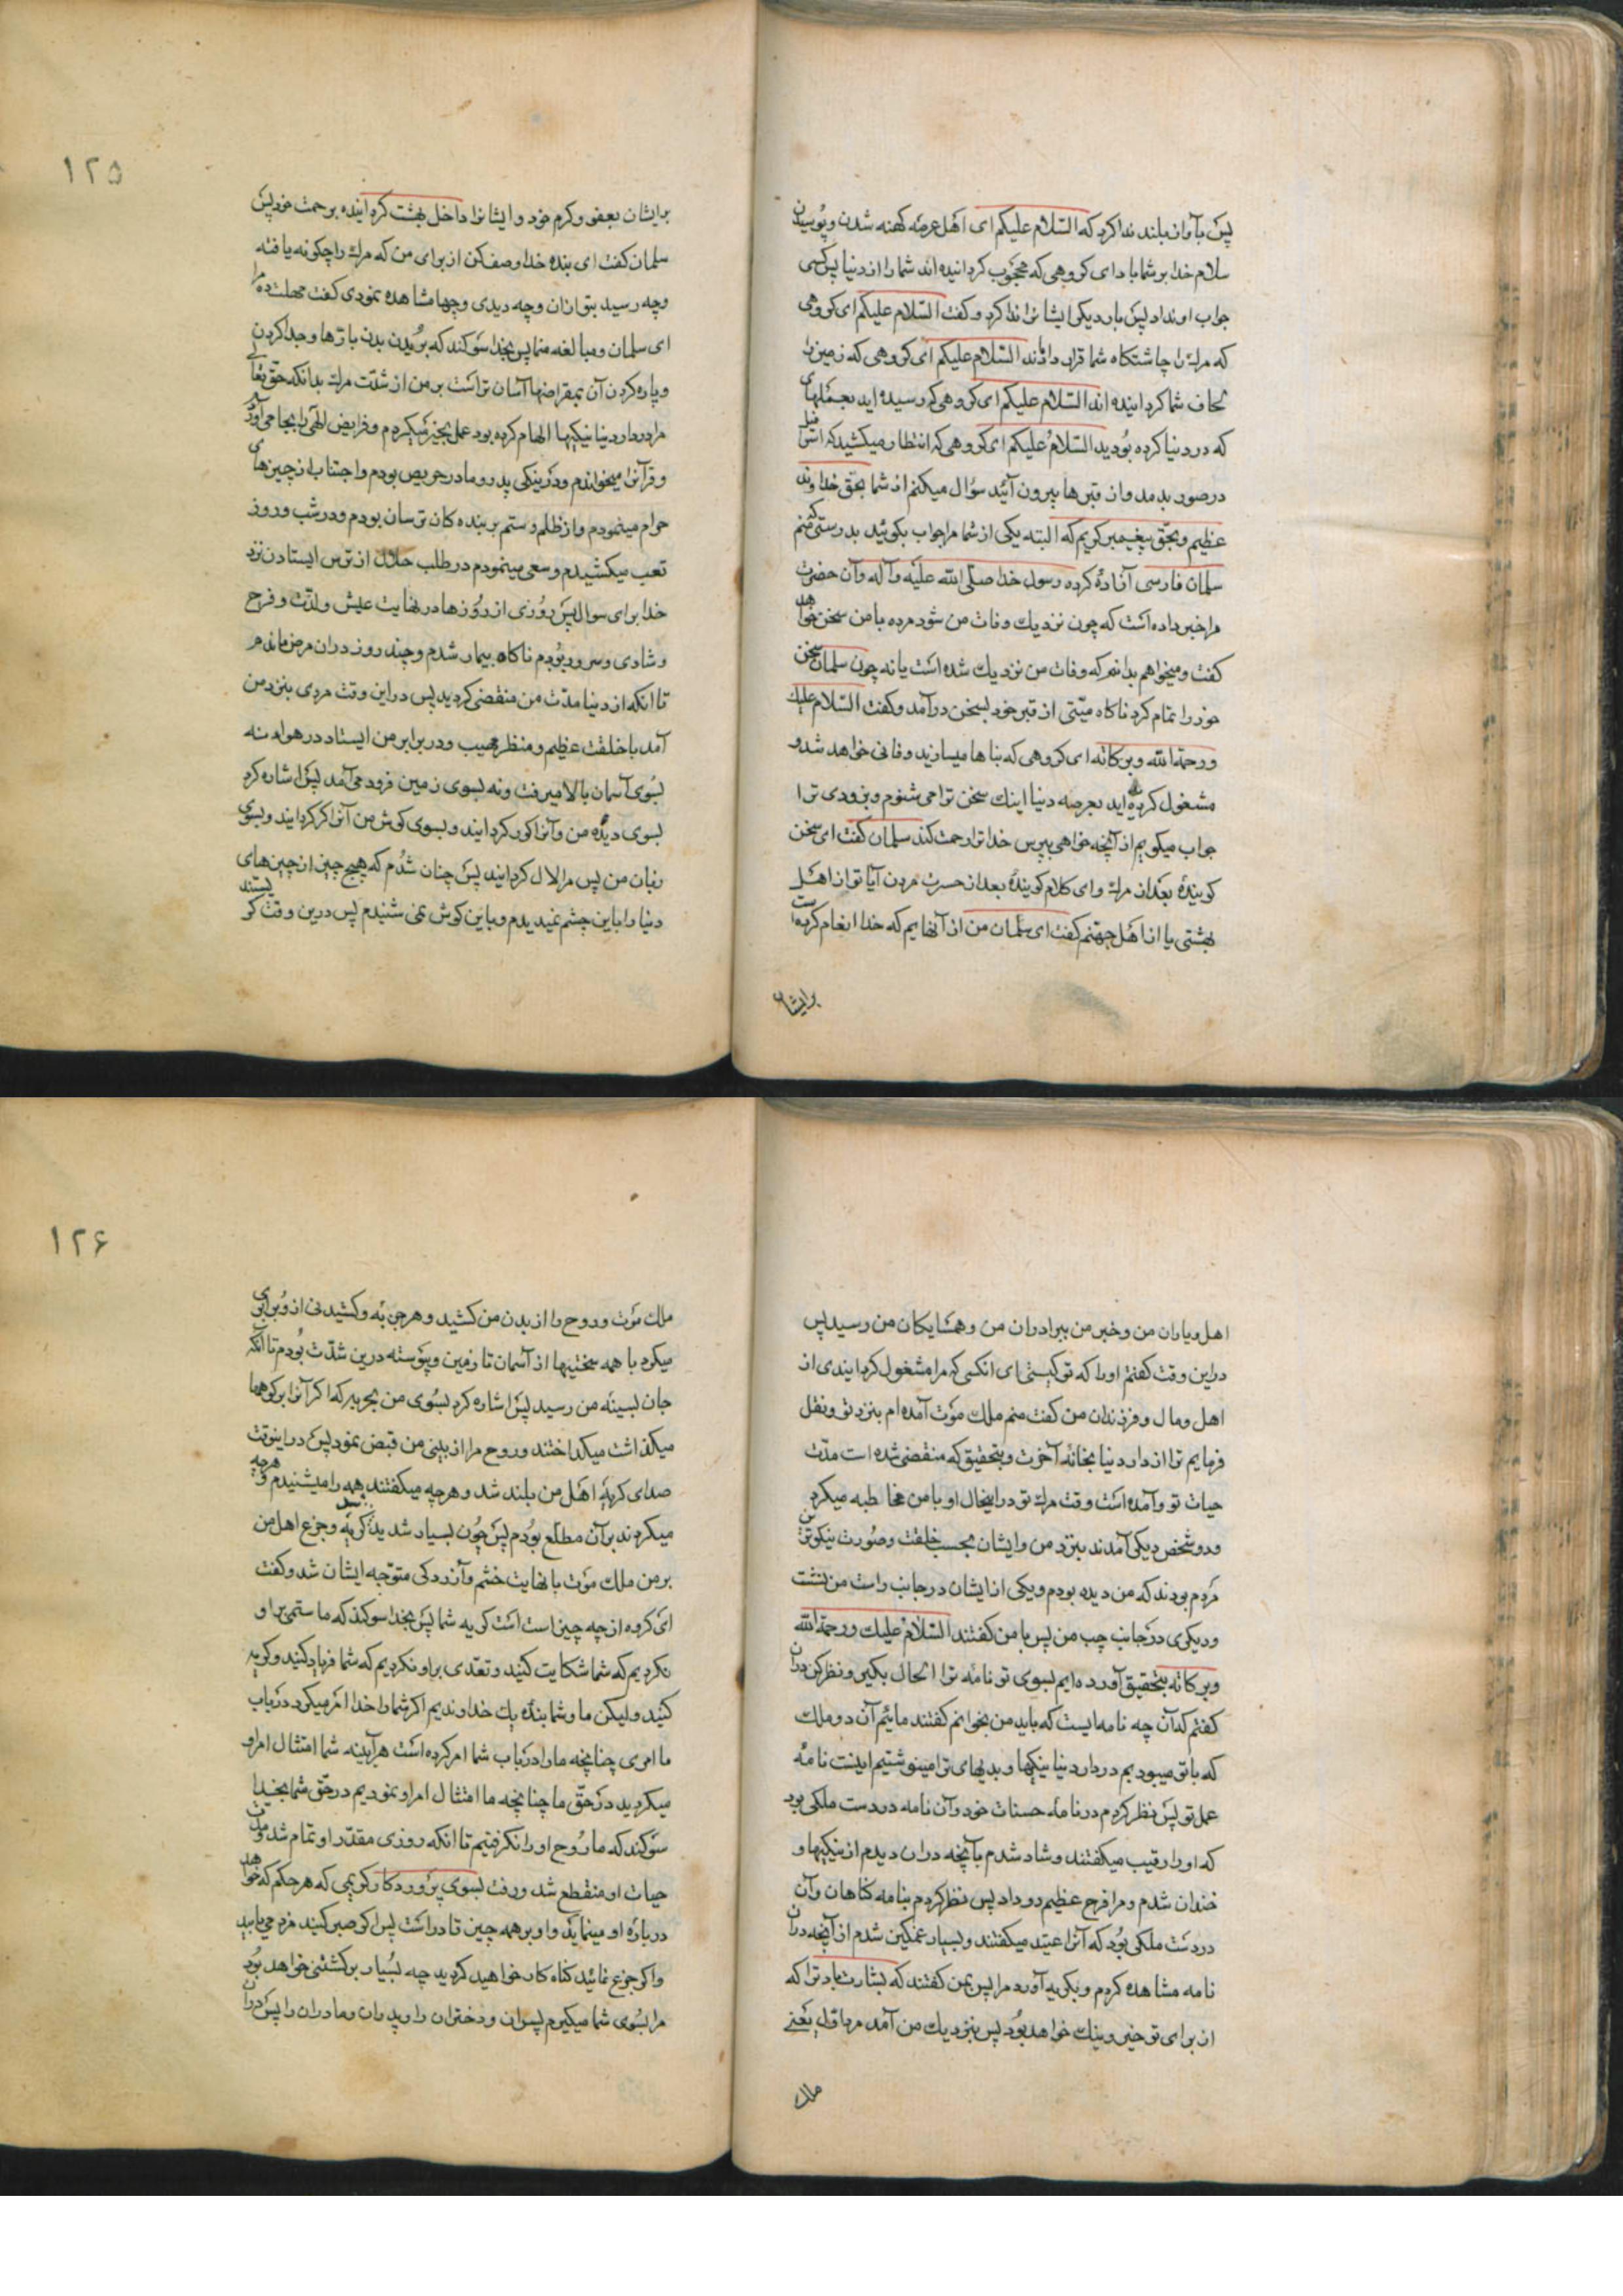 پس بآواز بلند ندا کرد که السّلام علیکم ای اهل عرصه کهنه شدن و پوسیدن
سلام خدا بر شما باد ای کروهی که محجوب کردانیده اند شما را از دنیا پس کسی
جواب او نداد پس بار دیکر ایشانرا ندا کرد و کفت السّلام علیکم ای کروهی
که مرك را چاشتکاه شما قرار داده‌اند السّلام علیکم ای کروهی که زمین را
لحاف شما کردانیده اند السّلام علیکم ای کروهی که رسیده اید بعملهای
که در دنیا کرده بودید السّلام علیکم ای کروهی که انتظار میکشید که اسرافیل
در صور بدمد و از قبرها بیرون آئید سؤال میکنم از شما بحق خداوند
عظیم و بحق پیغمبر کریم که البته یکی از شما مرا جواب بکوئید بدرستی که منم
سلمان فارسی آزاد کرده رسول خدا صلّی الله علیه و آله و آن حضرت
مرا خبر داده است که چون نزدیك وفات من شود مرده با من سخن خواهد
کفت و میخواهم بدانم که وفات من نزدیك شده است یا نه چون سلمان سخن
خود را تمام کرد ناکاه میّتی از قبر خود بسخن درآمد و کفت السّلام علیك
ورحمة الله وبرکاته ای کروهی که بناها میسازید و فانی خواهد شد و
مشغول کردیده اید بعرصه دنیا اینك سخن ترا می شنوم و بزودی ترا
جواب میکویم از آنچه خواهی بپرس خدا ترا رحمت کند سلمان کفت ای سخن
کوینده بعد از مرك و ای کلام کوینده بعد از حسرت مردن آیا تو از اهل
بهشتی یا از اهل جهنم کفت ای سلمان من از آنهایم که خدا انعام کرده است
برایشان
۱۲۵
برایشان بعفو و کرم خود و ایشانرا داخل بهشت کردانیده برحمت خود پس
سلمان کفت ای بنده خدا وصف کن از برای من که مرك را چکونه یافته
و چه رسید بتو ازان و چه دیدی و چها مشاهده نمودی کفت مهلت ده مرا
ای سلمان و مبالغه منما پس بخدا سوکند که بریدن بدن باره‌ها و جدا کردن
و پاره کردن آن بمقراضها آسان تر است بر من از شدّت مرك بدانکه حق تعالی
مرا در دار دنیا نیکیها الهام کرده بود عمل بخیر میکردم و فرایض الهی را بجا می آوردم
و قرآنرا میخواندم و در نیکی پدر و مادر حریص بودم و اجتناب از چیزهای
حرام مینمودم و از ظلم و ستم بر بنده کان ترسان بودم و در شب و روز
تعب میکشیدم و سعی مینمودم در طلب حلال از ترس ایستادن نزد
خدا برای سوال پس روزی از روزها در نهایت عیش و لذّت و فرح
و شادی و سرور بودم ناکاه بیمار شدم و چند روز دران مرض ماندم
تا انکه از دنیا مدّت من منقضی کردید پس در این وقت مردی بنزد من
آمد با خلقت عظیم و منظر مهیب و در برابر من ایستاد در هوا نه
بسوی آسمان بالا میرفت و نه بسوی زمین فرود می آمد پس اشاره کرد
بسوی دیده من و آنرا کور کردانید و بسوی کوش من آنرا کر کردانید و بسوی
زبان من پس مرا لال کردانید پس چنان شدم که هیچ چیز از چیزهای
دنیا را باین چشم نمیدیدم و باین کوش نمی شنیدم پس درین وقت کریستند
اهل و یاران من و خبر من ببرادران من و همسایکان من رسید پس
در این وقت کفتم او را که تو کیستی ای انکسی که مرا مشغول کردانیدی از
اهل و مال و فرزندان من کفت منم ملك موت آمده ام بنزد تو و نقل
فرمایم ترا از دار دنیا بخانه آخرت و بتحقیق که منقضی شده است مدّت
حیات تو و آمده است وقت مرك تو در اینحال او با من مخاطبه میکرد
و دو شخص دیکر آمدند بنزد من و ایشان بحسب خلقت و صورت نیکوترین
مردم بودند که من دیده بودم و یکی از ایشان در جانب راست من نشست
و دیکری در جانب چپ من پس با من کفتند السّلام علیك ورحمة الله
وبرکاته بتحقیق آورده‌ایم بسوی تو نامه ترا الحال بکیر و نظر کن دران
کفتم که آن چه نامه ایست که باید من بخوانم کفتند مائیم آن دو ملك
که با تو میبودیم در دار دنیا نیکیها و بدیهای ترا مینوشتیم اینست نامه
عمل تو پس نظر کردم در نامه حسنات خود و آن نامه در دست ملکی بود
که او را رقیب میکفتند و شاد شدم بآنچه دران دیدم از نیکیها و
خندان شدم و مرا فرح عظیم رو داد پس نظر کردم بنامه کناهان و آن
در دست ملکی بود که آنرا عتید میکفتند و بسیار غمکین شدم از آنچه دران
نامه مشاهده کردم و بکریه آورد مرا پس بمن کفتند که بشارت باد ترا که
از برای تو خیر و نیك خواهد بود پس بنزدیك من آمد مرد اوّل یعنی
ملك
۱۲۶
ملك موت و روح را از بدن من کشید و هر جذبه و کشیدنی از او برابری
میکرد با همه سختیها از آسمان تا زمین و پیوسته درین شدّت بودم تا آنکه
جان بسینه من رسید پس اشاره کرد بسوی من بحربه که اکر آنرا بر کوهها
میکذاشت میکداختند و روح مرا از بینی من قبض نمود پس در اینوقت
صدای کریه اهل من بلند شد و هرچه میکفتند همه را میشنیدم و هرچه
میکردند بر آن مطلع بودم پس چون بسیار شدید شد کریه و جزع اهل من
بر من ملك موت با نهایت خشم و آزردکی متوجه ایشان شد و کفت
ای کروه از چه چیز است کریه شما پس بخدا سوکند که ما ستمی بر او
نکردیم که شما شکایت کنید و تعدّی بر او نکردیم که شما فریاد کنید و کریه
کنید و لیکن ما و شما بنده یك خداوندیم اکر شما را خدا امر میکرد در باب
ما امری چنانچه ما را در باب شما امر کرده است هرآینه شما امتثال امر او
میکردید در حق ما چنانچه ما امتثال امر او نمودیم در حق شما بخدا
سوکند که ما روح او را نکرفتیم تا انکه روزی مقدّر او تمام شد و مدت
حیات او منقطع شد و رفت بسوی پروردکار کریمی که هر حکم که خواهد
درباره او مینماید و او بر همه چیز قادر است پس اکر صبر کنید مزد می یابید
و اکر جزع نمائید کناه کار خواهید کردید چه بسیار برکشتنی خواهد بود
مرا بسوی شما میکیرم پسران و دختران را و پدران و مادران را پس دران